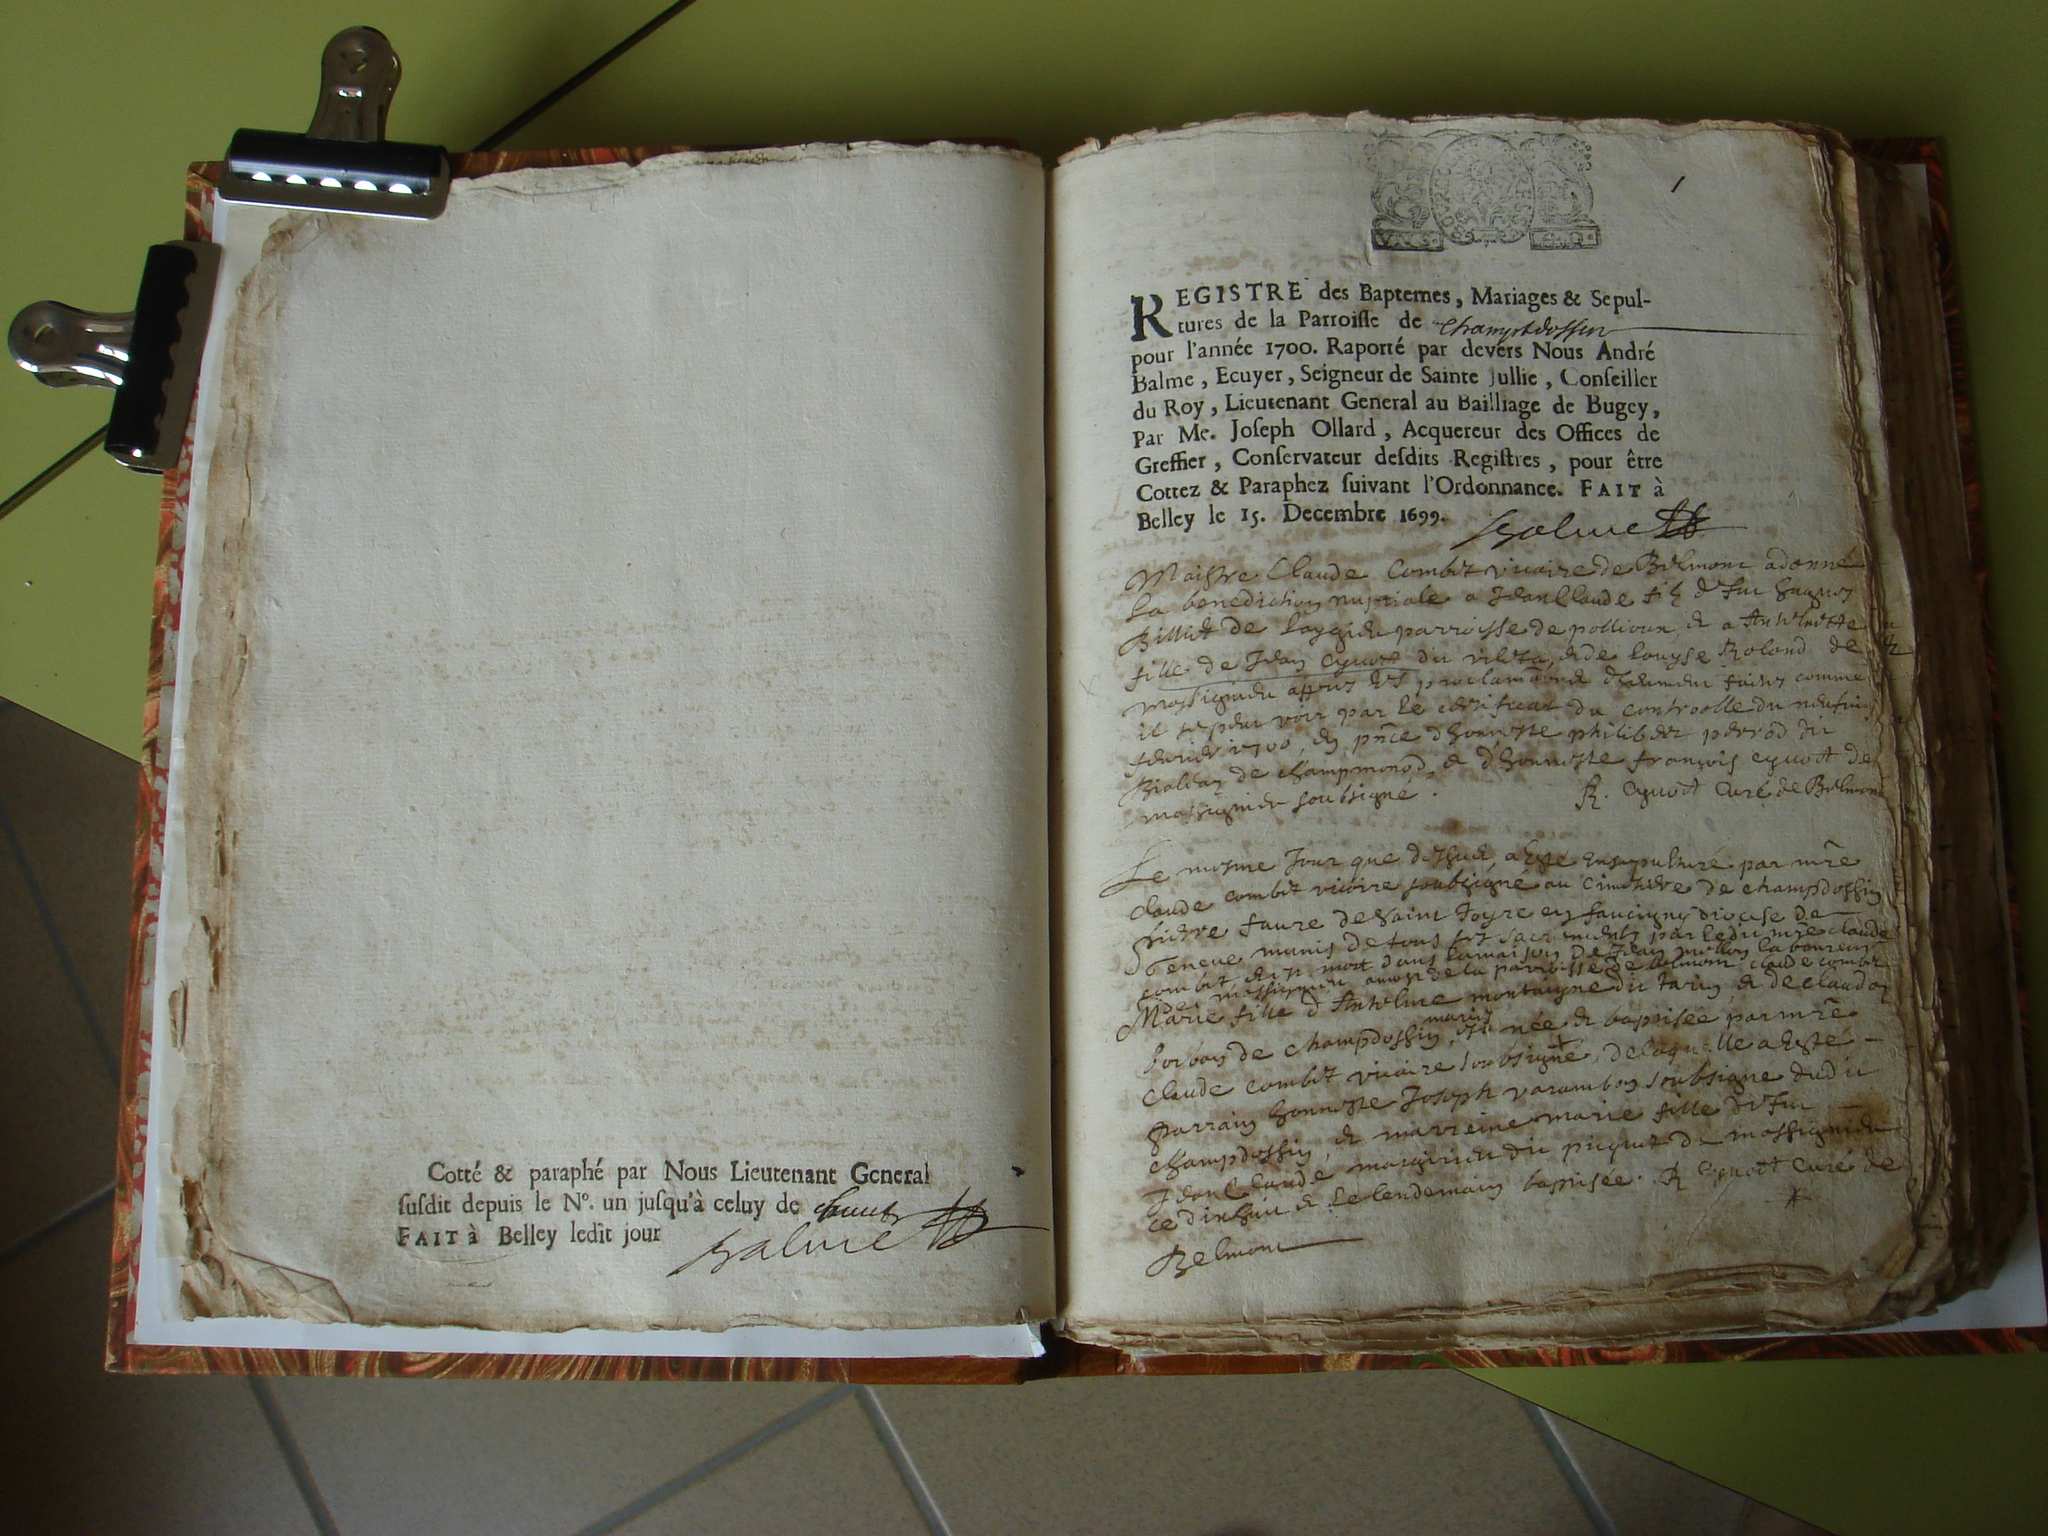 Cotté & paraphé par Nous Lieutenant General
susdit depuis le N°. un jusqu'à celuy de
FAIT à Belley ledit jour
Balme
1
REGISTRE des Baptemes, Mariages & Sepul-
tures de la Parroisse de Champdossin
pour l'année 1700. Raporté par devers Nous André
Balme, Ecuyer, Seigneur de Sainte Jullie, Conseiller
du Roy, Lieutenant General au Bailliage de Bugey,
Par Me. Joseph Ollard, Acquereur des Offices de
Greffier, Conservateur desdits Registres, pour être
Cottez & Paraphez suivant l'Ordonnance. FAIT à
Belley le 15. Decembre 1699.
Balme
Maistre Claude Combet vicaire de Belmont a donné
la benediction nuptiale a Jean Claude filz de feu
Billiet de parroisse de pollieux & a Anthelmette
fille de Jean Cyvoct du & de Louyse Rolond de
Massignieu apres les proclamations faites comme
il se peut voir par le certificat du controolle du
febvrier 1700, en pnce d'honneste philibert perrod du
de Champmorod, & d'honneste françois cyvoct de
massignieu soubsigné. R. Cyvoct Curé de Belmont
Le mesme Jour que dessus, a esté ensepulturé par mre
Claude combet vicaire soubsigné au cimetiere de champdossin
pierre faure de saint Joyre en faucigny diocese de
Geneve munis de tous les sacrements par ledit mre claude
combet & est mort dans la maison de Jean millon laboureur
de massignieu de la parroisse de belmont claude combet
Marie fille d'Anthelme montaigne du & de claudaz
de champdossin, née & baptisée par mre
Claude combet vicaire soubsigné, de laquelle a esté
parrain honneste Joseph varambon soubsigné dudit
Champdossin, & marreine marie fille de feu
Jean Claude du de massignieu
& le lendemain baptisée. R Cyvoct Curé de
Belmont